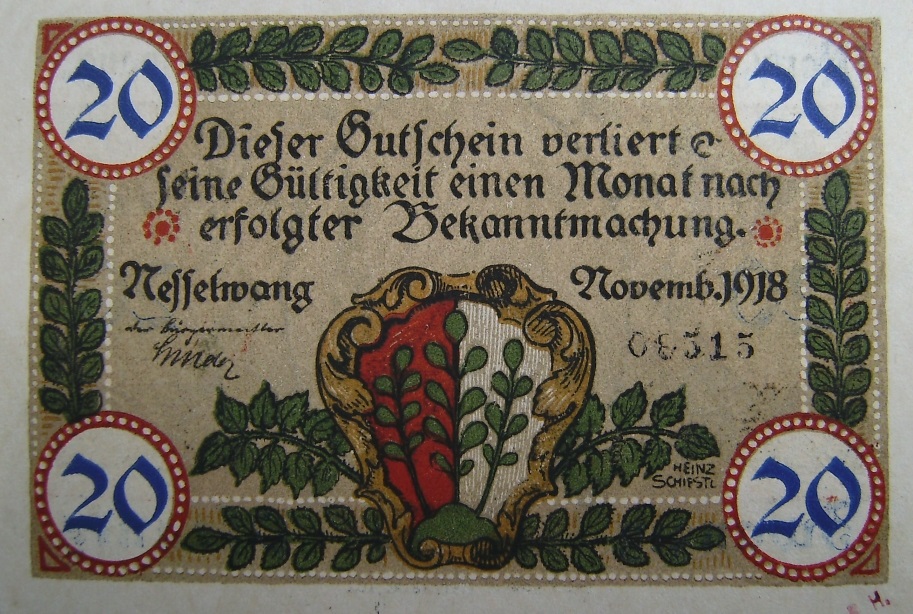 20 20
Dieser Gutschein verliert
seine Gültigkeit einen Monat nach
erfolgter Bekanntmachung.
Nesselwang Novemb. 1918
der Bürgermeister
08515
HEINZ
SCHIESTL
20 20
H.